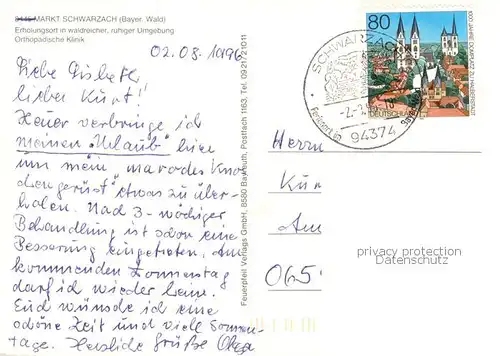 8445 MARKT SCHWARZACH (Bayer. Wald)
Erholungsort in waldreicher, ruhiger Umgebung
Orthopädische Klinik
02.08.1996
Liebe Lisbeth,
lieber Kurt!
Heuer verbringe ich
meinen "Urlaub" hier
um mein "marodes Kno-
chengerüst" etwas zu über-
holen. Nach 3-wöchiger
Behandlung ist schon eine
Besserung eingetreten. Am
kommenden Sonnerstag
darf ich wieder heim.
Euch wünsche ich eine
schöne Zeit und viele Sonnen-
tage. Herzliche Grüße Olga
Feuerpfeil Verlags GmbH, 8580 Bayreuth, Postfach 1163, Tel. 0921/21011
SCHWARZACH
94374
80
DEUTSCHLAND
1000 JAHRE DOMPLATZ ZU HALBERSTADT
Herrn
Kur
Am
065
privacy protection
Datenschutz